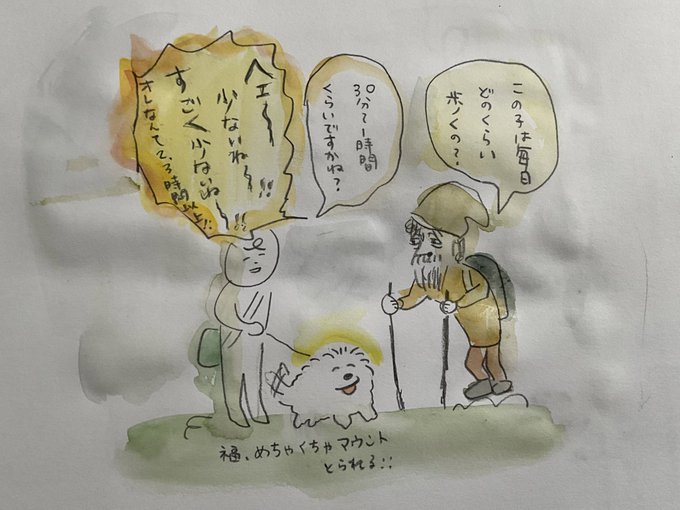 この子は毎日
どのくらい
歩くの?
30分〜1時間
くらいですかね?
ヘェ〜〜
少ないね〜〜!!
すごく少ないね〜!!
オレなんて2、3時間以上!!
福、めちゃくちゃマウント
とられる!!